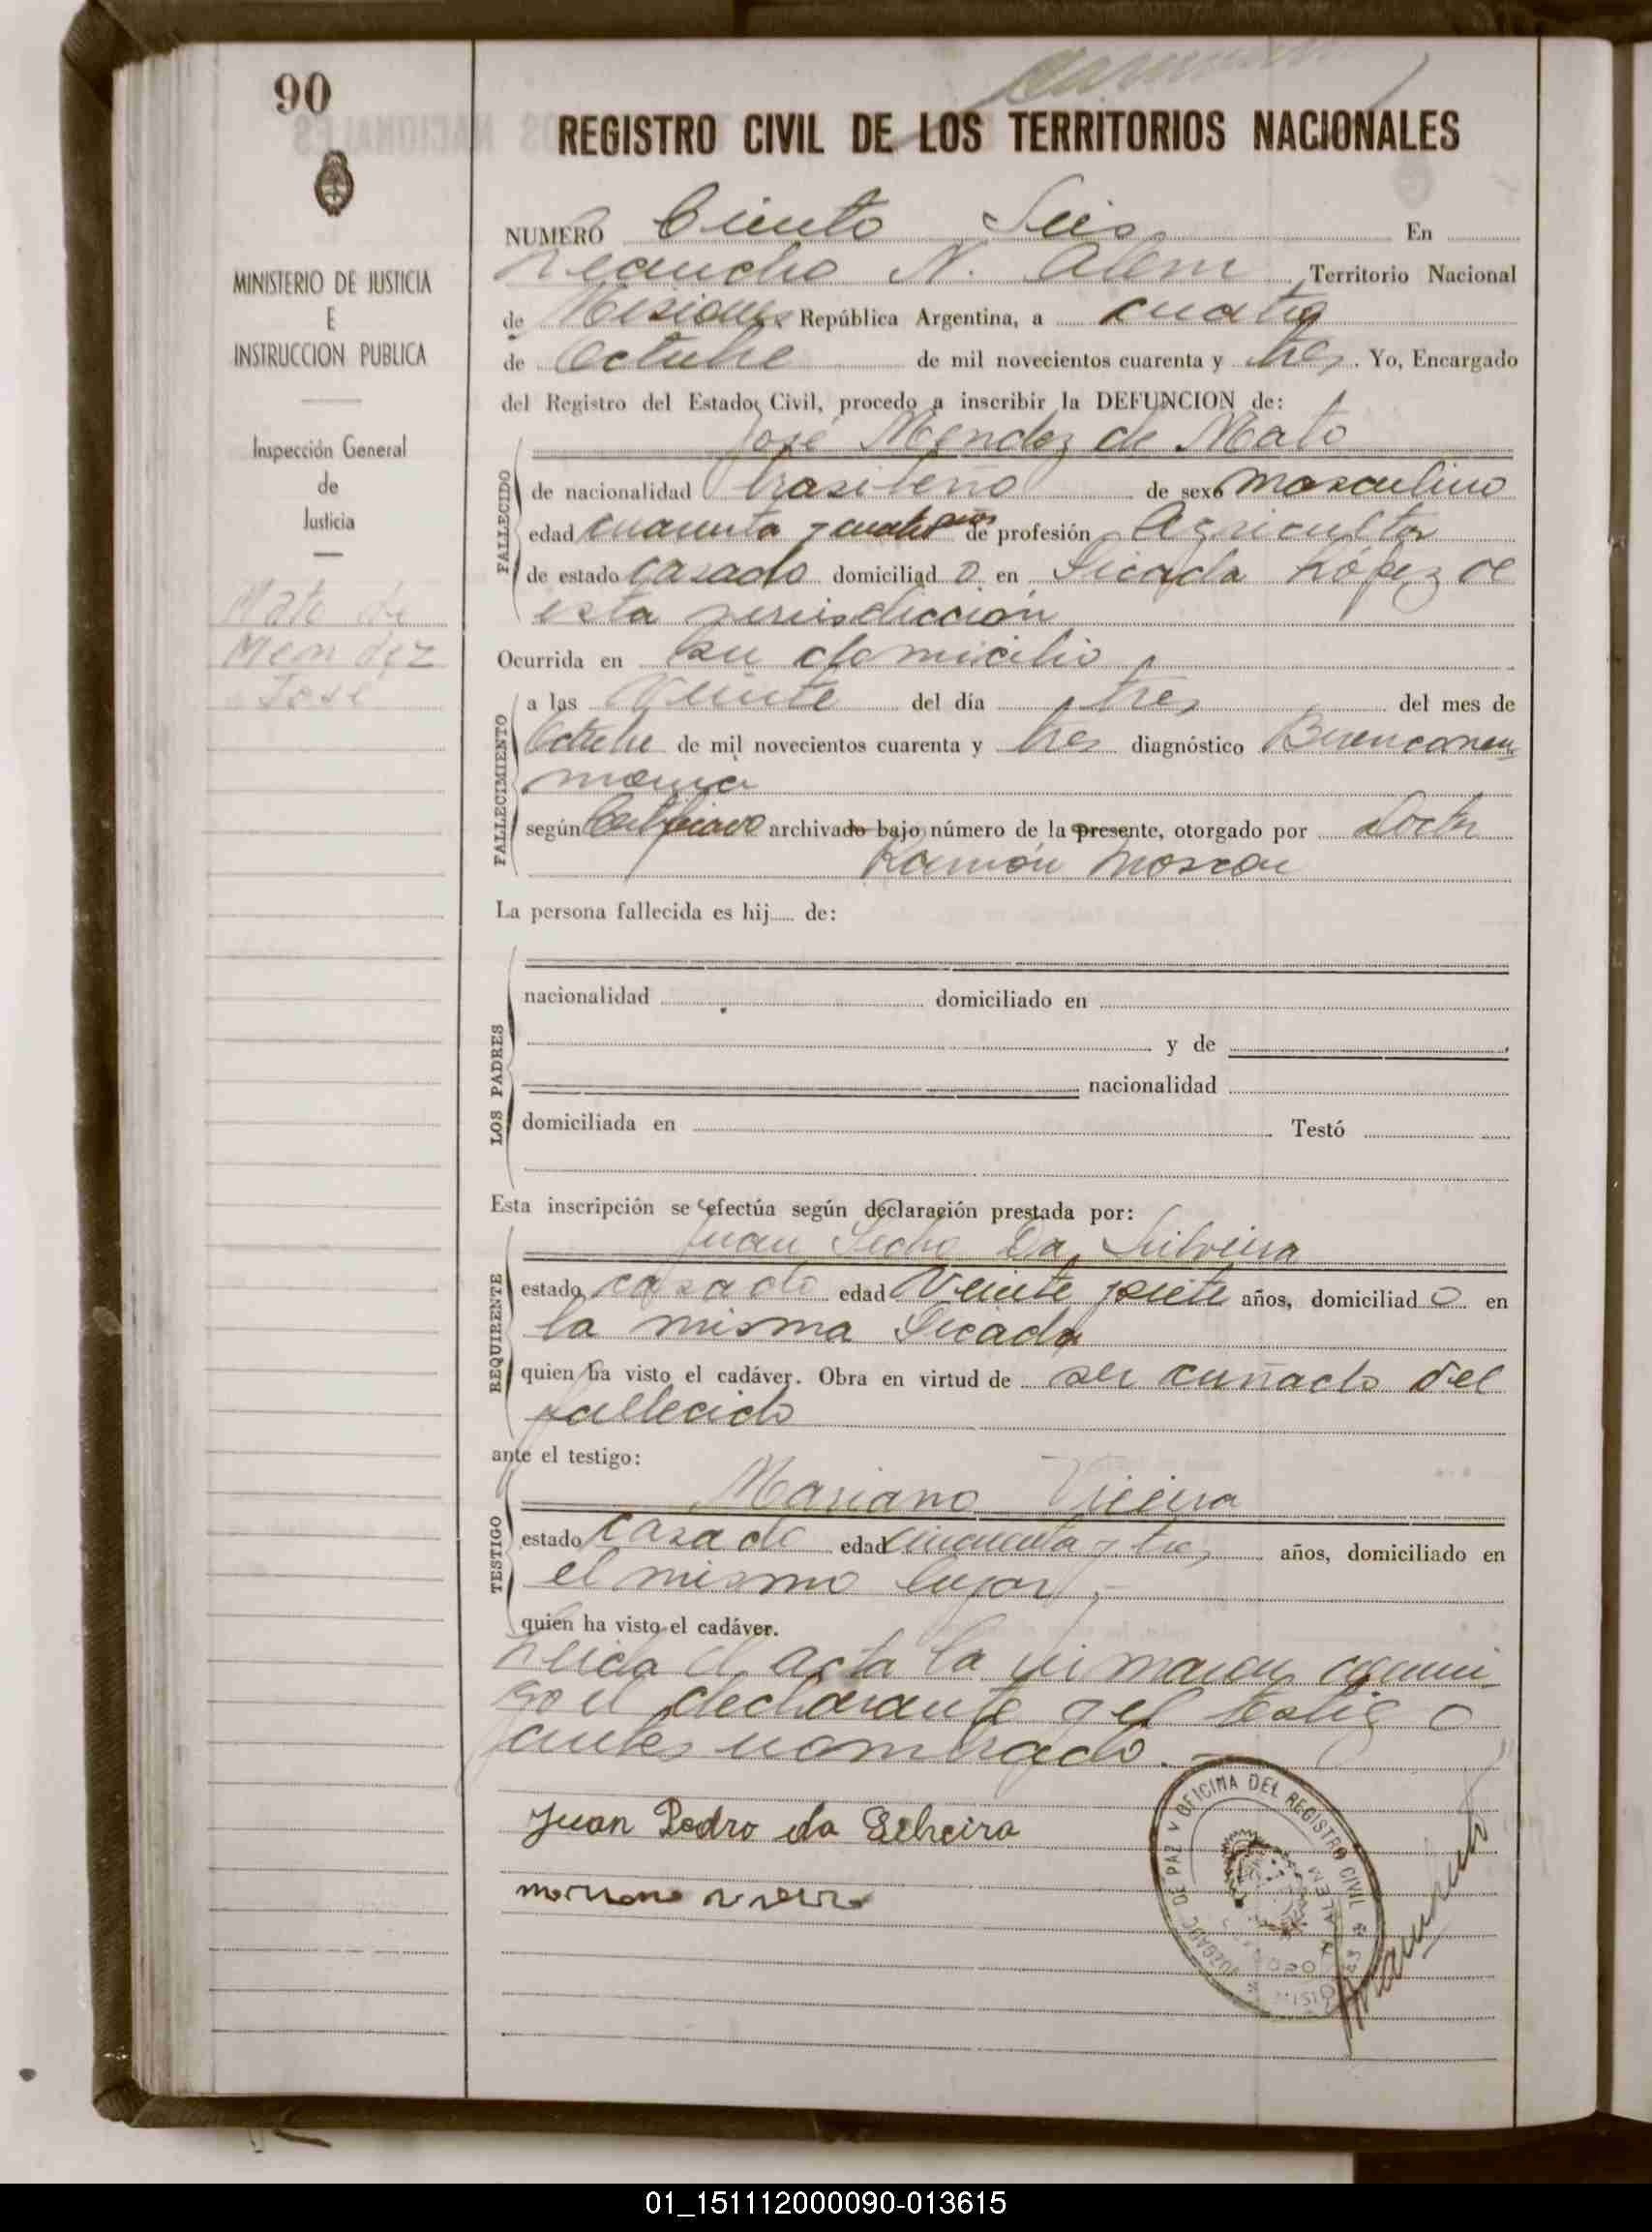 90
REGISTRO CIVIL DE LOS TERRITORIOS NACIONALES
MINISTERIO DE JUSTICIA
E
INSTRUCCION PUBLICA
Inspección General
de
Justicia
Mato de
Mendez
José
NUMERO Ciento Seis En
Leandro N. Alem Territorio Nacional
de Misiones República Argentina, a cuatro
de Octubre de mil novecientos cuarenta y tres. Yo, Encargado
del Registro del Estado Civil, procedo a inscribir la DEFUNCION de:
José Mendez de Mato
FALLECIDO
de nacionalidad brasileño de sexo masculino
edad cuarenta y cuatro años de profesión Agricultor
de estado casado domiciliad o en Picada López de
esta jurisdicción
Ocurrida en su domicilio
FALLECIMIENTO
a las Veinte del día tres del mes de
Octubre de mil novecientos cuarenta y tres diagnóstico Bronconeu
monia
según Certificado archivado bajo número de la presente, otorgado por Doctor
Ramón
La persona fallecida es hij de:
LOS PADRES
nacionalidad domiciliado en
y de
nacionalidad
domiciliada en Testó
Esta inscripción se efectúa según declaración prestada por:
REQUIRENTE
Juan Pedro Da Silveira
estado casado edad Veinte siete años, domiciliad o en
la misma Picada
quien ha visto el cadáver. Obra en virtud de ser cuñado del
fallecido
ante el testigo:
TESTIGO
Mariano Vieira
estado casado edad cincuenta y tres años, domiciliado en
el mismo lugar.-
quien ha visto el cadáver.
Leida el acta la firmaron conmi
go el declarante y el testigo
antes nombrado.-
Juan Pedro da Silveira
mariano vieira
JUZGADO DE PAZ Y OFICINA DEL REGISTRO CIVIL
01_151112000090-013615